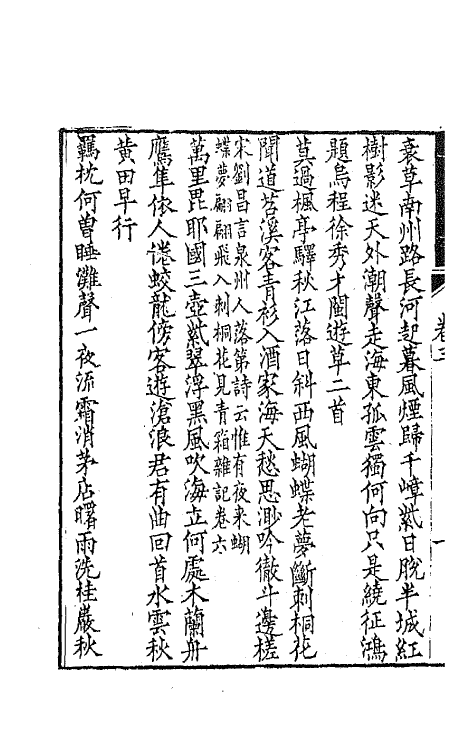 卷三
一
衰草南州路長河起暮風煙歸千嶂紫日脫半城紅
樹影迷天外潮聲走海東孤雲獨何向只是繞征鴻
題烏程徐秀才閩遊草二首
莫過楓亭驛秋江落日斜西風蝴蝶老夢斷刺桐花
聞道苕溪客青衫入酒家海天愁思渺吟徹斗邊槎
宋劉昌言泉州人落第詩云惟有夜來蝴
蝶夢翩翩飛入刺桐花見青箱雜記卷六
萬里毘耶國三壺紫翠浮黑風吹海立何處木蘭舟
鷹隼依人倦蛟龍傍客遊滄浪君有曲回首水雲秋
黄田早行
羈枕何曾睡灘聲一夜流霜消茅店曙雨洗桂巖秋